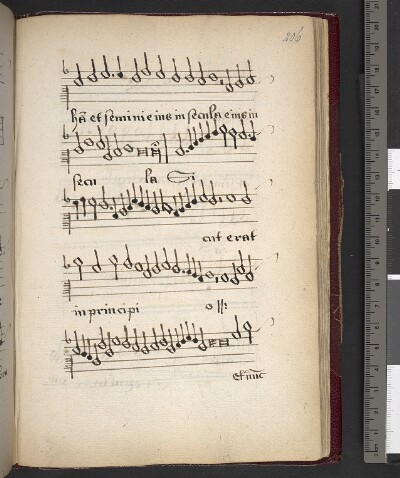 206
hā et semini eius in secula eius in
secu la Si
cut erat
in principi o
et nūc